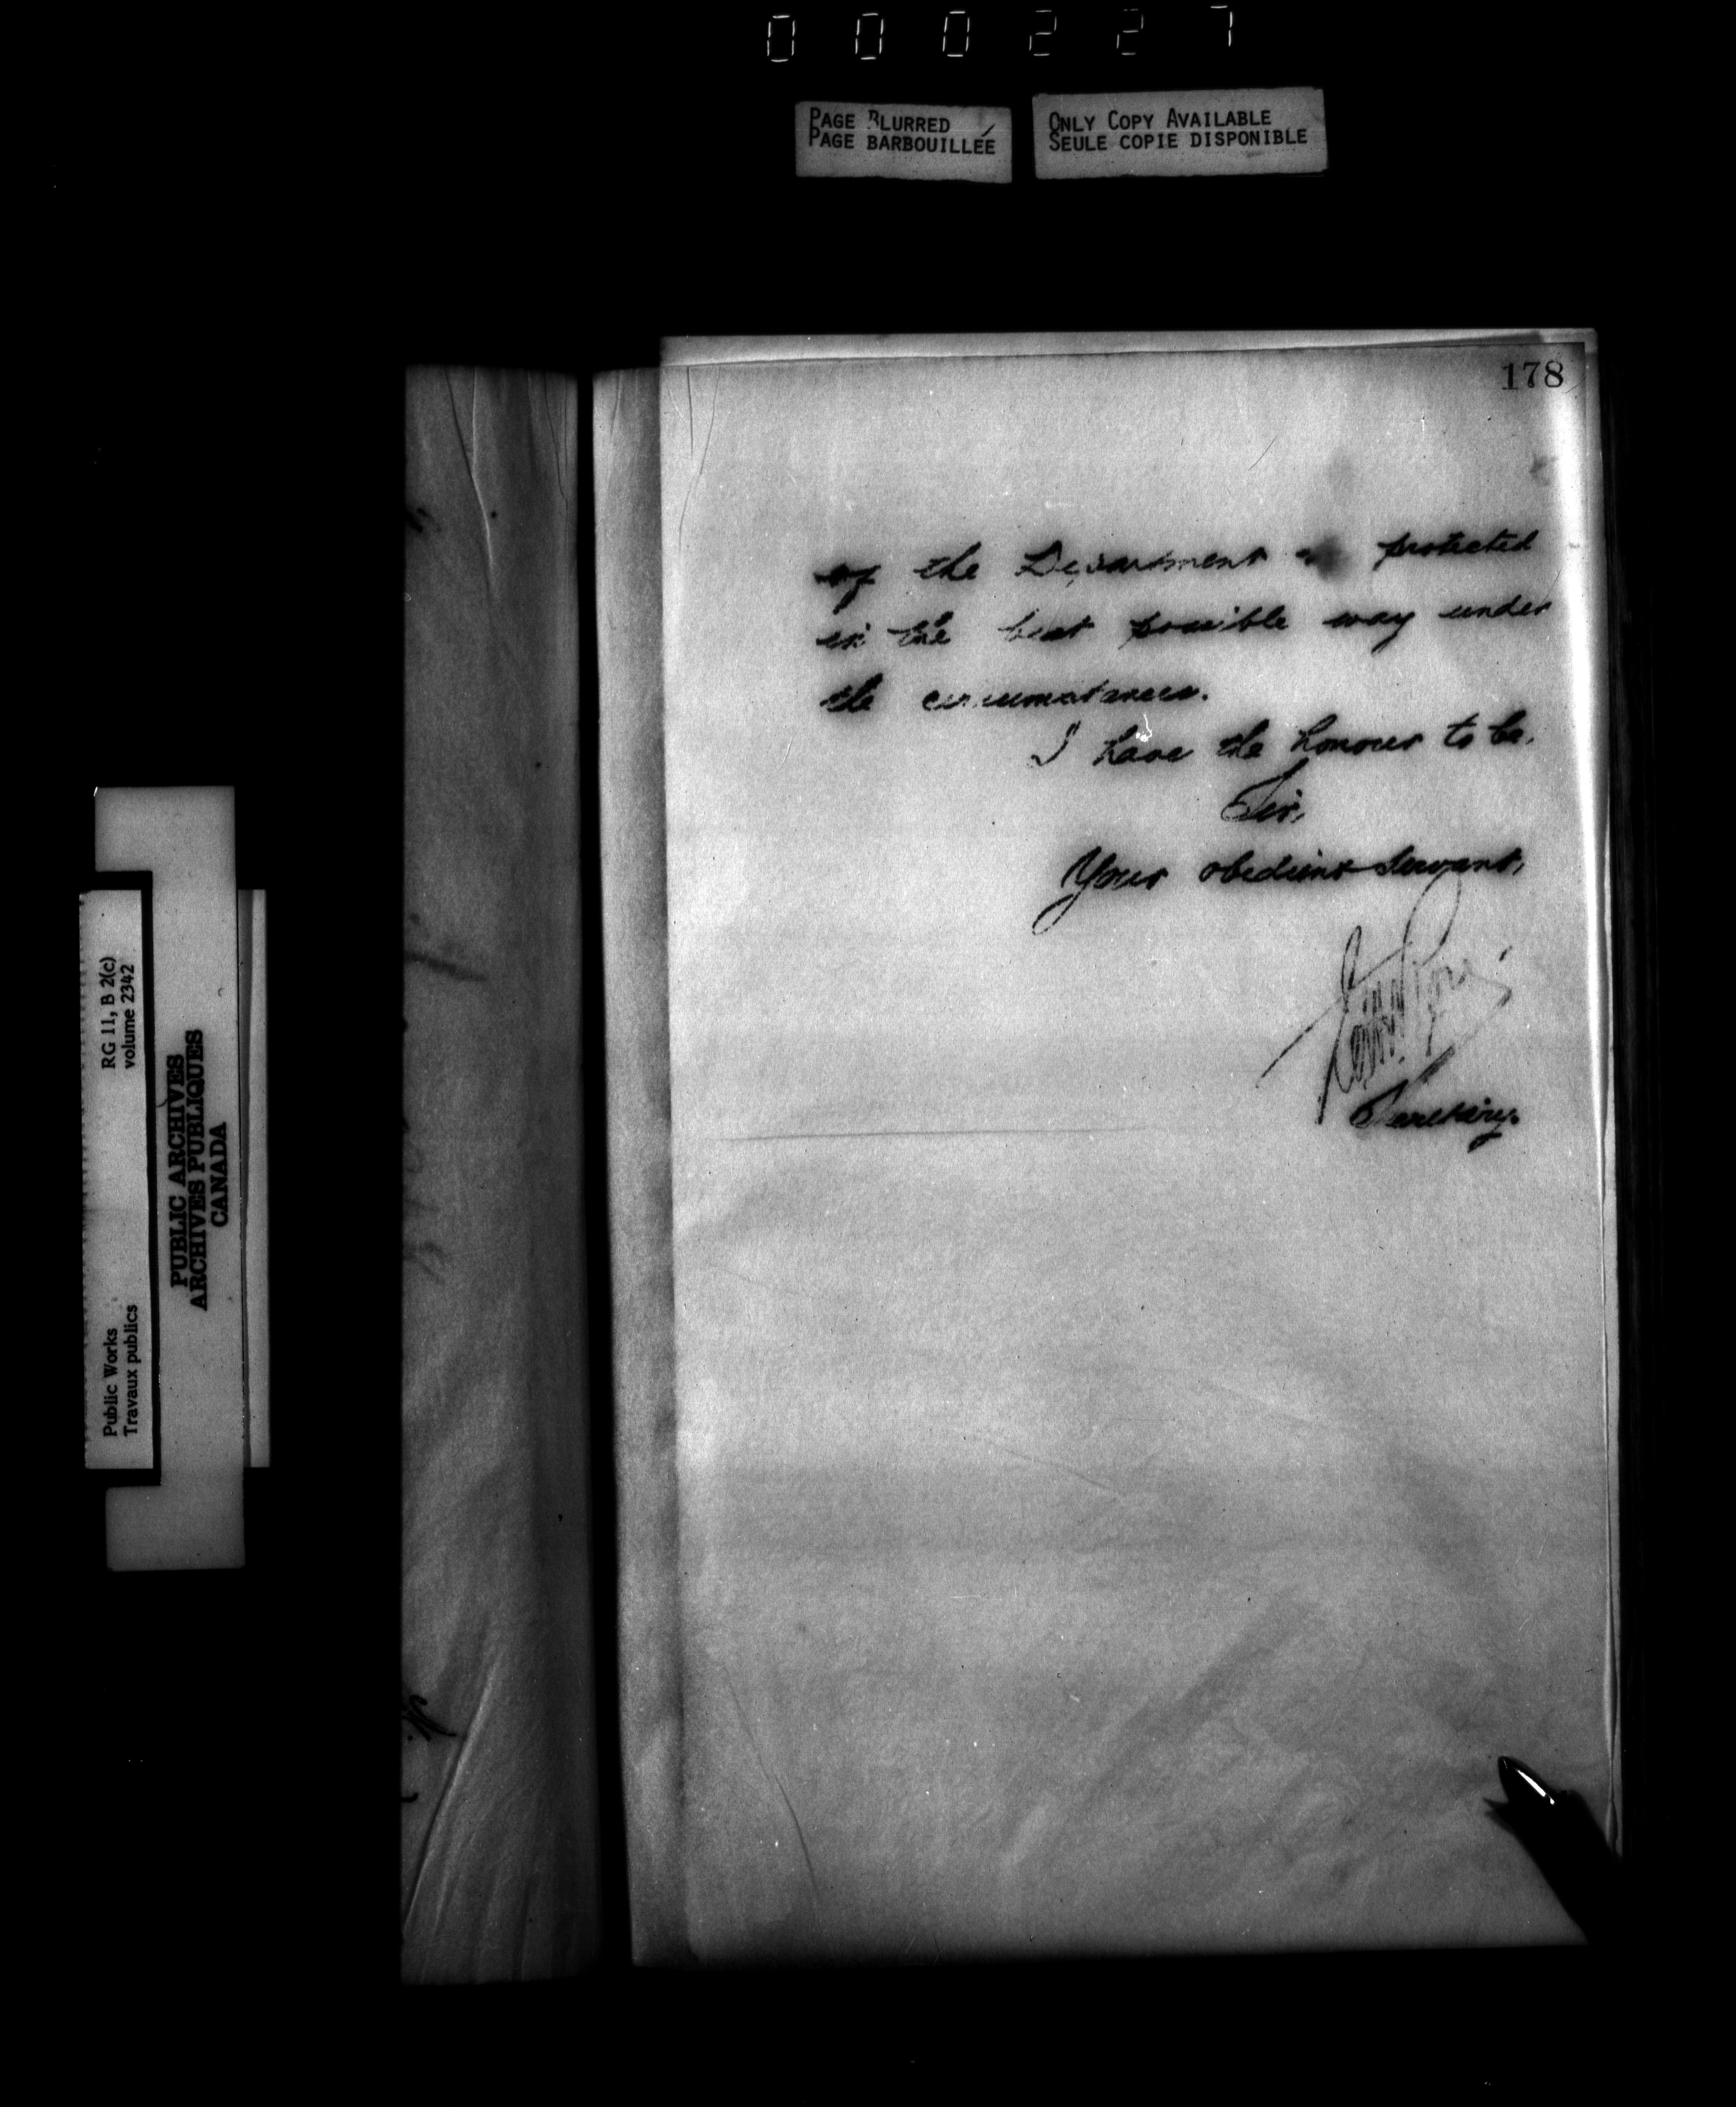 000227
PAGE BLURRED
PAGE BARBOUILLÉE
ONLY COPY AVAILABLE
SEULE COPIE DISPONIBLE
178
of the Department protected
in the best possible way under
the circumstances.
I have the honour to be,
Sir,
Your obedient Servant,
Secretary.
RG 11, B 2(c)
volume 2342
Public Works
Travaux publics
PUBLIC ARCHIVES
ARCHIVES PUBLIQUES
CANADA